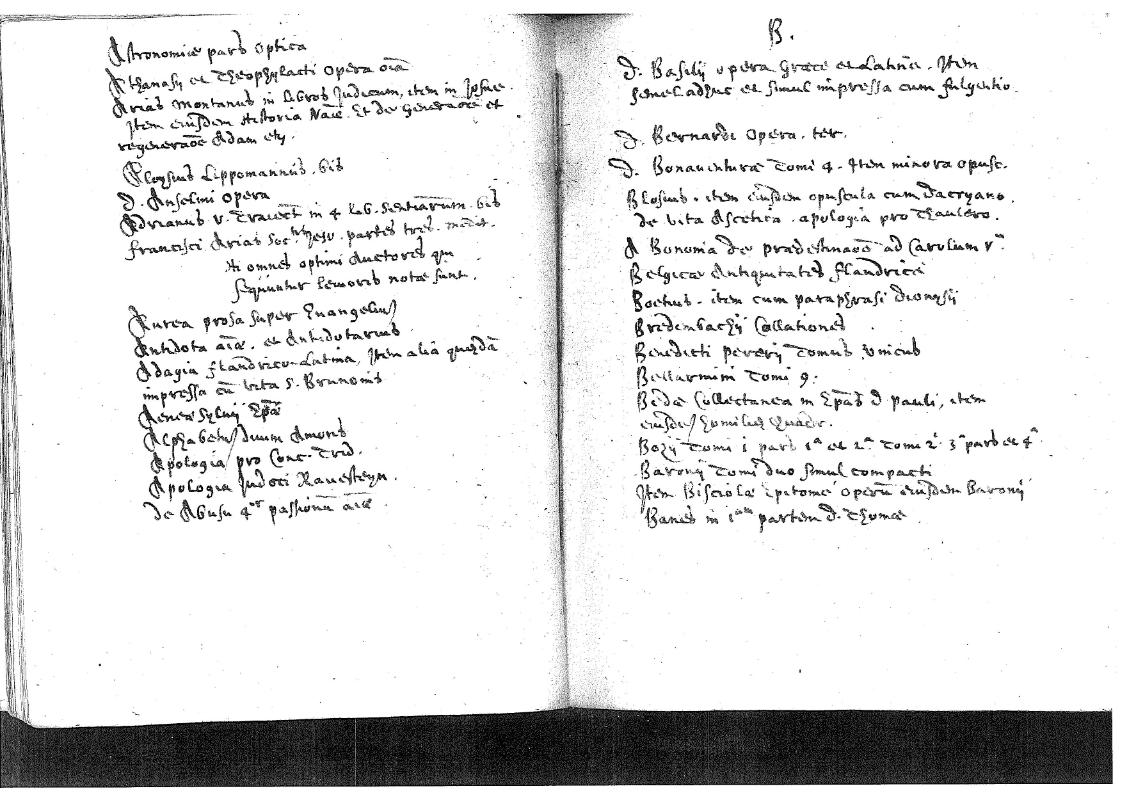 Astronomiæ pars Optica
Athanasij et Theophylacti Opera oīa
Arias Montanus in Libros Judicum, item in Josue.
Item eiusdem Historia Naīæ. Et de Generaōe et
regeneraōe Adam etc.
Aloysius Lippomannus. bis
D. Anselmi Opera
Adrianus v. Traiect in 4 lib. Sentiarum. bis
Francisci Arias Soc.tis Jesu. partes tres.
Hi omnes optimi Auctores qui
sequuntur levioris notæ sunt.
Aurea prosa super Euangelium
Antidota aīæ. et Antidotarius
Adagia flandrico-Latina, Item alia quædā
impressa cū vita S. Brunonis
Aeneæ Sylvij Epæ
Alphabetum Diuini Amoris
Apologia pro Conc. Trid.
Apologia Judoci Rauesteyn.
de Abusu 4or passionū aīæ
B.
D. Basilij opera Græce et Latine. Item
semel adhuc et simul impressa cum fulgentio.
D. Bernardi Opera. ter.
D. Bonauenturæ Tomi 4. Item minora opusc.
Blosius. item eiusdem opuscula cum Dacryano.
de vita Ascetica. apologia pro Thaulero.
A Bononia de prædestinaōe ad Carolum Vm
Belgicæ Antiquitates flandricè
Boetius. item cum paraphrasi Dionysij
Bredembachij Collationes
Benedicti Pererij Tomus vnicus
Bellarmini Tomi 9.
Bedæ Collectanea in Epas D Pauli, item
eiusdem homiliæ Quadr.
Bozij Tomi 1 pars 1a et 2a. Tomi 2i 3a pars et 4a.
Baronij Tomi duo simul compacti
Item Bisciolæ Epitome operū eiusdem Baronij
Banes in 1am partem D. Thomæ